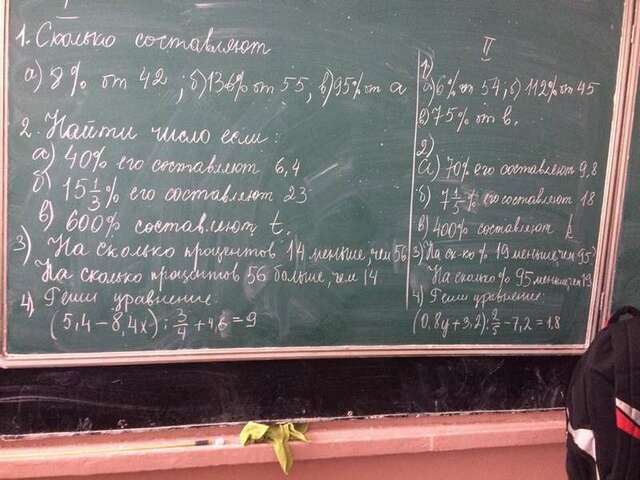 I
1. Сколько составляют
а) 8% от 42; б) 136% от 55, в) 95% от а
2. Найти число если:
а) 40% его составляют 6,4
б) 15 1/3 % его составляют 23
в) 600% составляют t.
3) На сколько процентов 14 меньше, чем 56
На сколько процентов 56 больше, чем 14
4) Реши уравнение:
(5,4 - 8,4x) : 3/4 + 4,6 = 9
II
1)
а) 6% от 54, б) 112% от 45
в) 75% от в.
2)
а) 70% его составляют 9,8
б) 7 1/5 % его составляют 18
в) 400% составляют k
3) На ск-ко % 19 меньше, чем 95?
На сколько % 95 меньше, чем 19
4) Реши уравнение:
(0,8y + 3,2) : 2/5 - 7,2 = 1,8